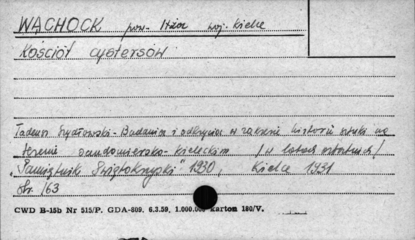 WĄCHOCK pow. Iłża woj. Kielce
Kościół cystersów
Tadeusz Szydłowski - Badania i odkrycia w zakresie historii sztuki na
terenie sandomiersko-kieleckim /w latach ostatnich/
"Pamiętnik Świętokrzyski" 1930, Kielce 1931
Str. 163
CWD B-15b Nr 515/P. GDA-809. 6.3.59, 1.000.000 karton 180/V.